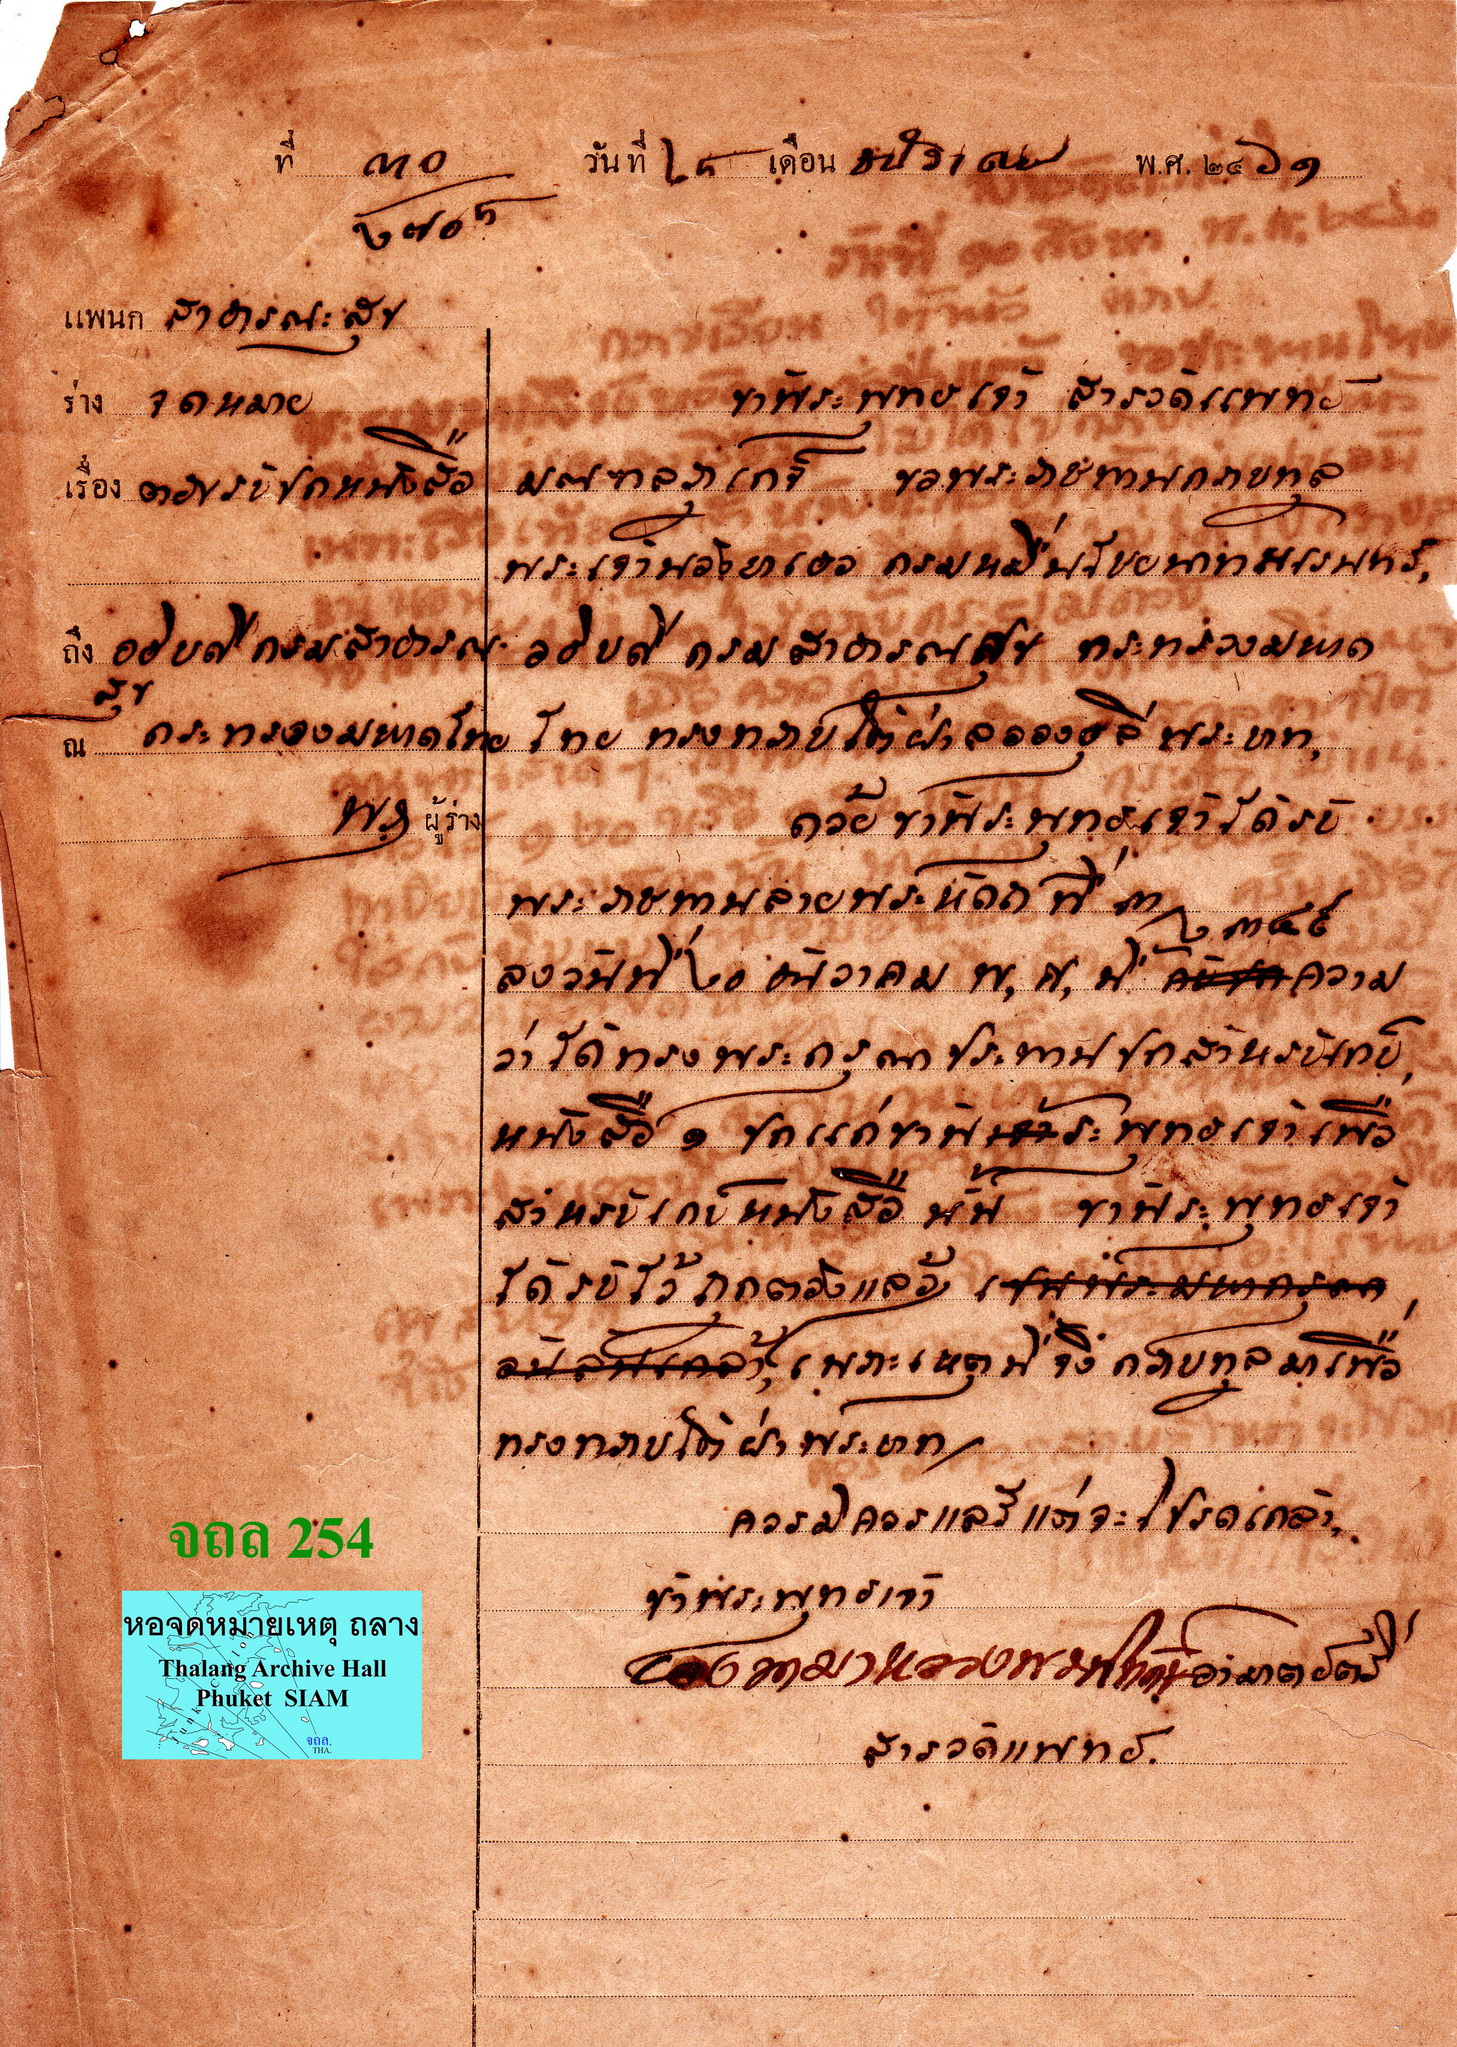 ที่ ๓๐ วันที่ ๒๕ เดือน เมษายน พ.ศ. ๒๔๖๑
๒๗๐๕
แพนก สาธารณะสุข
ร่าง จดหมาย
เรื่อง ตอบรับปกหนังสือ
ถึง อธิบดีกรมสาธารณ
สุข
ณ กระทรวงมหาดไทย
ผู้ร่าง
ข้าพระพุทธเจ้า สารวัดแพทย์
มณฑลภูเก็จ ขอพระราชทานกราบทูล
พระเจ้าน้องยาเธอ กรมหมื่นไชยนาทนเรนทร,
อธิบดี กรมสาธารณสุข กระทรวงมหาด
ไทย ทรงทราบใต้ฝ่าลอองธุลีพระบาท,
ด้วยข้าพระพุทธเจ้าได้รับ
พระราชทานลายพระหัดถ์ที่ ๓
๒๓๔๔
ลงวันที่ ๒๐ ธันวาคม พ, ศ, นี้ ความ
ว่าได้ทรงพระกรุณาประทานปกสำหรับเก็บ
หนังสือ ๑ ปกแก่ข้าพระพุทธเจ้าเพื่อ
สำหรับเก็บหนังสือ นั้น ข้าพระพุทธเจ้า
ได้รับไว้ถูกต้องแล้ว เปนพระมหากรุณา
อันล้นเกล้า, เพราะเหตุนี้จึ่งกราบทูลมาเพื่อ
ทรงทราบใต้ฝ่าพระบาท
ควรมิควรแล้วแต่จะโปรดเกล้า,
ข้าพระพุทธเจ้า
อำมาตย์ตรี
สารวัดแพทย์.
จถล 254
หอจดหมายเหตุ ถลาง
Thalang Archive Hall
Phuket SIAM
จถล.
THA.